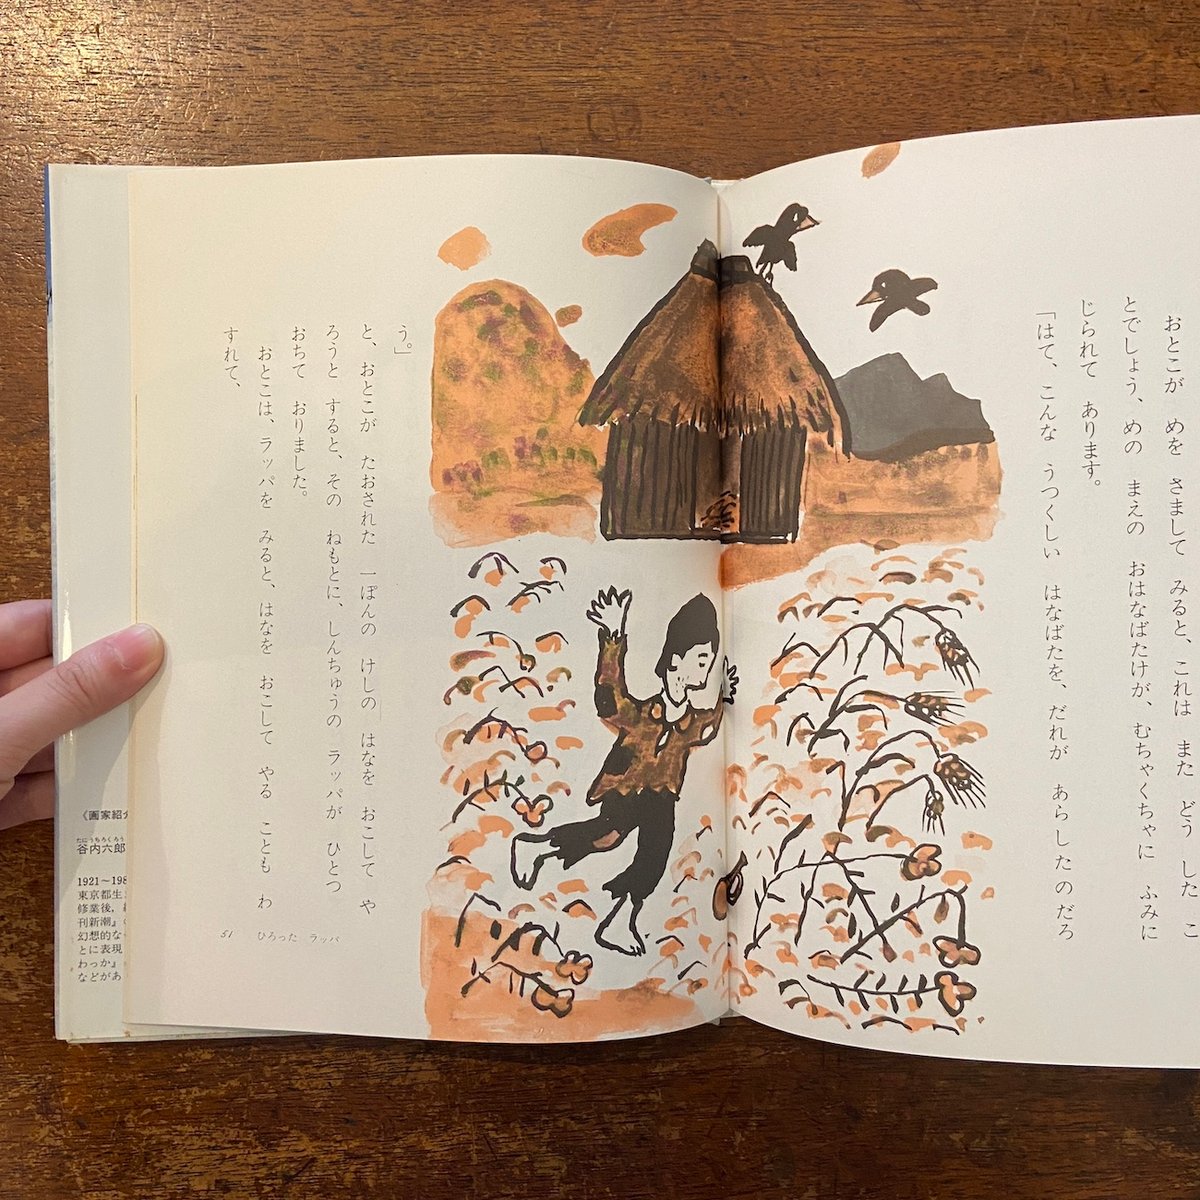 おとこが　めを　さまして　みると、これは　また　どう　した　こ
とでしょう、めの　まえの　おはなばたけが、むちゃくちゃに　ふみに
じられて　あります。
「はて、こんな　うつくしい　はなばたを、だれが　あらしたのだろ
う。」
と、おとこが　たおされた　一ぽんの　けしの　はなを　おこして　や
ろうと　すると、その　ねもとに、しんちゅうの　ラッパが　ひとつ
おちて　おりました。
おとこは、ラッパを　みると、はなを　おこして　やる　ことも　わ
すれて、
51　ひろった　ラッパ
《画家紹介
たにうちろくろう
谷内六郎
1921〜198
東京都生
修業後，
刊新潮』
幻想的な
とに表現
わっか』
などがあ